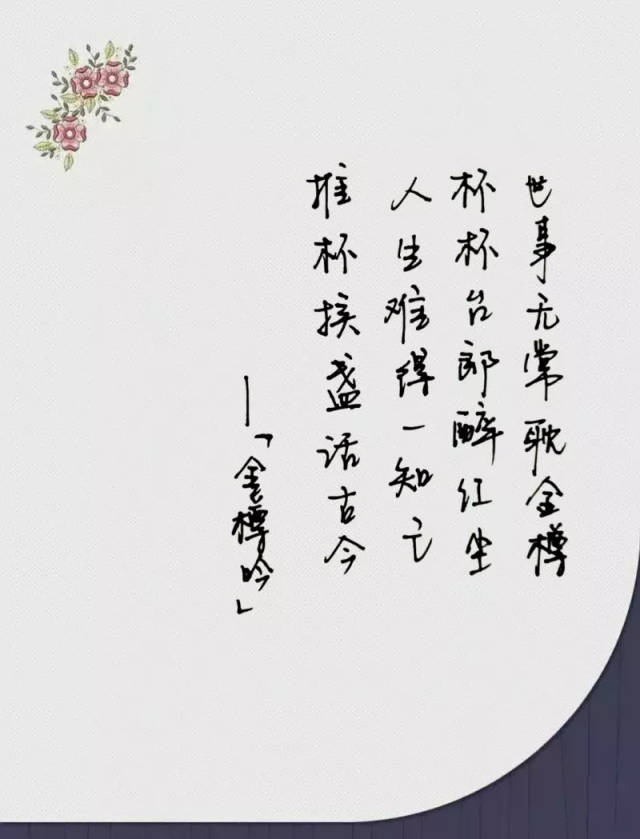 世事无常耽金樽
杯杯台郎醉红尘
人生难得一知己
推杯换盏话古今
—「金樽吟」